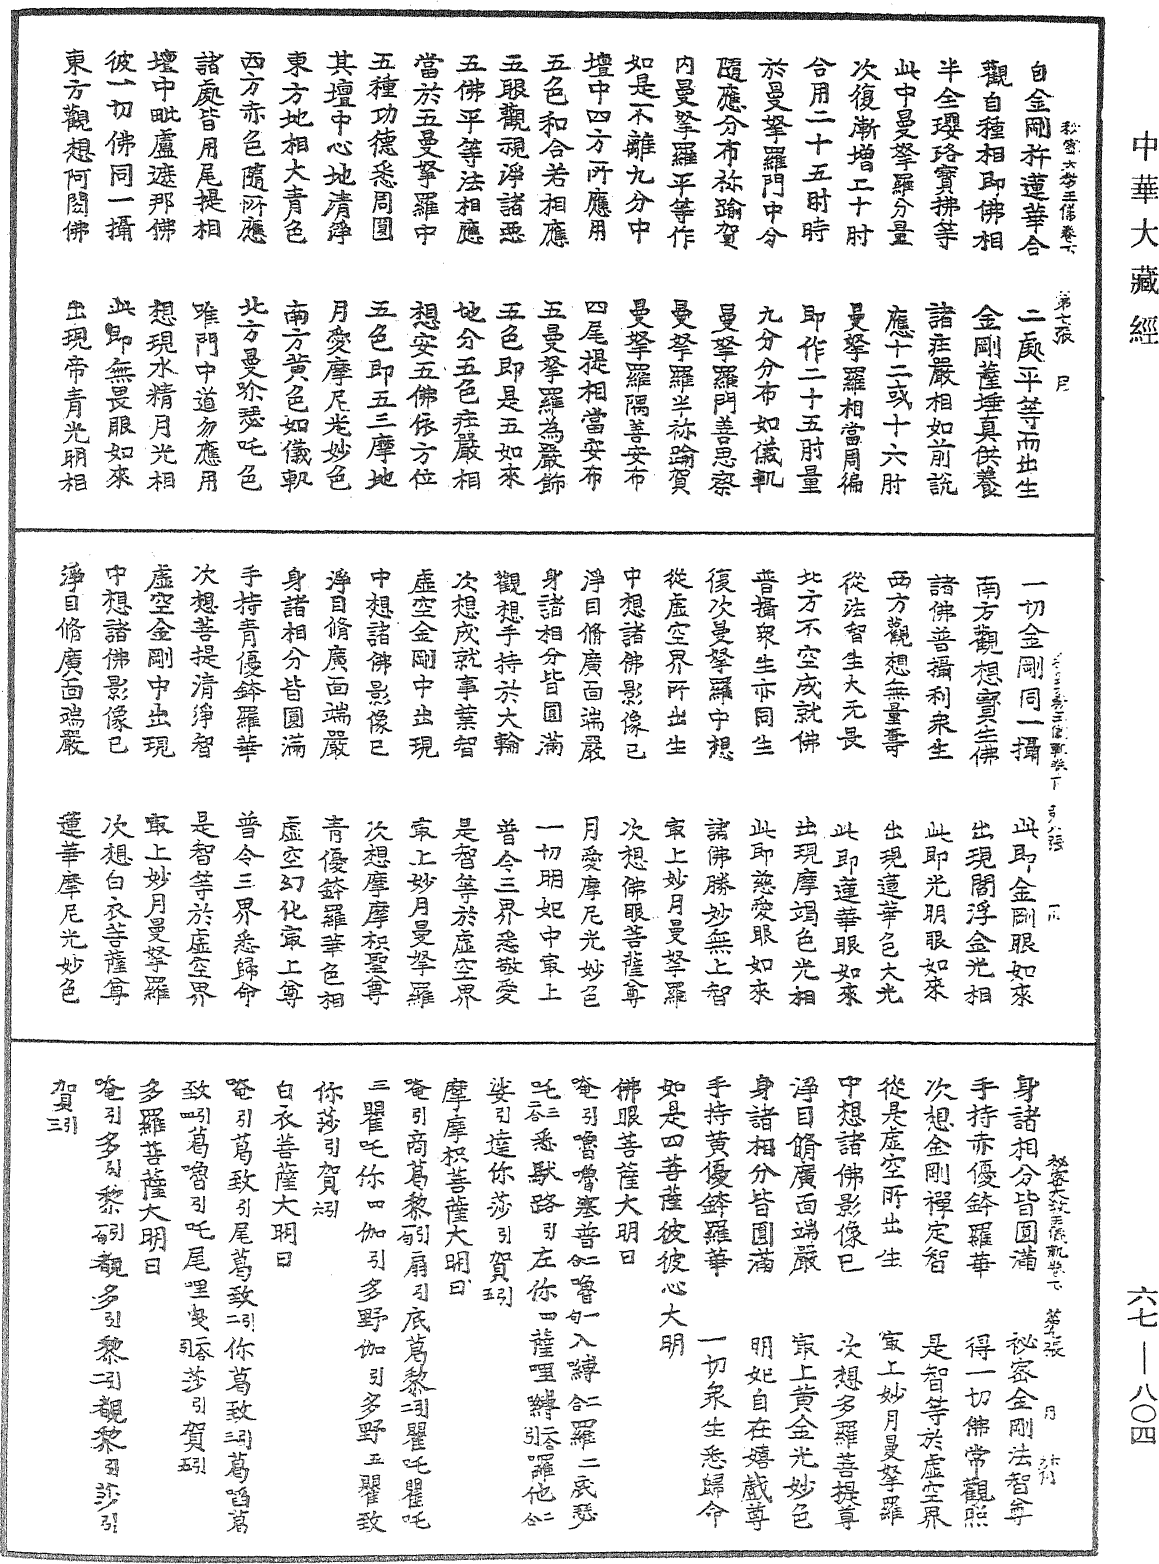 中華大藏經
六七—八〇四
秘密大教王儀卷下　第七張　尽
自金剛杵蓮華合　二處平等而出生
觀自種相即佛相　金剛薩埵真供養
半全瓔珞寶拂等　諸莊嚴相如前說
此中曼拏羅分量　應十二或十六肘
次復漸增二十肘　曼拏羅相當周徧
合用二十五肘時　即作二十五肘量
於曼拏羅門中分　九分分布如儀軌
隨應分布祢踰賀　曼拏羅門善思察
內曼拏羅平等作　曼拏羅半祢踰賀
如是不離九分中　曼拏羅隅善安布
壇中四方所應用　四尾提相當安布
五色和合若相應　五曼拏羅為嚴飾
五眼觀視淨諸惡　五色即是五如來
五佛平等法相應　地分五色莊嚴相
當於五曼拏羅中　想安五佛依方位
五種功德悉周圓　五色即五三摩地
其壇中心地清淨　月愛摩尼光妙色
東方地相大青色　南方黃色如儀軌
西方赤色隨所應　北方曼𨁝瑟吒色
諸處皆用尾提相　唯門中道勿應用
壇中毗盧遮那佛　想現水精月光相
彼一切佛同一攝　此即無畏眼如來
東方觀想阿閦佛　出現帝青光明相
一切金剛同一攝　此即金剛眼如來
南方觀想寶生佛　出現閻浮金光相
諸佛普攝利衆生　此即光明眼如來
西方觀想無量壽　出現蓮華色大光
從法智生大无畏　此即蓮華眼如來
北方不空成就佛　出現摩竭色光相
普攝衆生亦同生　此即慈愛眼如來
復次曼拏羅中想　諸佛勝妙無上智
從虛空界所出生　最上妙月曼拏羅
中想諸佛影像已　次想佛眼菩薩尊
淨目脩廣面端嚴　月愛摩尼光妙色
身諸相分皆圓滿　一切明妃中最上
觀想手持於大輪　普令三界悉敬愛
次想成就事業智　是智等於虛空界
虛空金剛中出現　最上妙月曼拏羅
中想諸佛影像已　次想摩摩枳聖尊
淨目脩廣面端嚴　青優鉢羅華色相
身諸相分皆圓滿　虛空幻化最上尊
手持青優鉢羅華　普令三界悉歸命
次想菩提清淨智　是智等於虛空界
虛空金剛中出現　最上妙月曼拏羅
中想諸佛影像已　次想白衣菩薩尊
淨目脩廣面端嚴　蓮華摩尼光妙色
秘密大教王儀軌卷下　第九張
身諸相分皆圓滿　祕密金剛法智尊
手持赤優鉢羅華　得一切佛常觀照
次想金剛禪定智　是智等於虛空界
從是虛空所出生　最上妙月曼拏羅
中想諸佛影像已　次想多羅菩提尊
淨目脩廣面端嚴　最上黃金光妙色
身諸相分皆圓滿　明妃自在嬉戲尊
手持黃優鉢羅華　一切衆生悉歸命
如是四菩薩彼彼心大明
佛眼菩薩大明曰
唵引嚕嚕塞普二合嚕一句入嚩二合羅二底瑟
吒二合三悉馱路引左你四薩哩嚩二合引囉他二合
娑引達你莎引賀引五
摩摩枳菩薩大明曰
唵引商葛黎引一句扇引底葛黎引二瞿吒瞿吒
三瞿吒你四伽引多野伽引多野五瞿致
你莎引賀引六
白衣菩薩大明曰
唵引葛致引尾葛致引二你葛致引三葛㗖葛
致引四葛嚕引吒尾哩曳二合引莎引賀引五
多羅菩薩大明曰
唵引多引黎引一句覩多引黎引二覩黎引莎引
賀引三